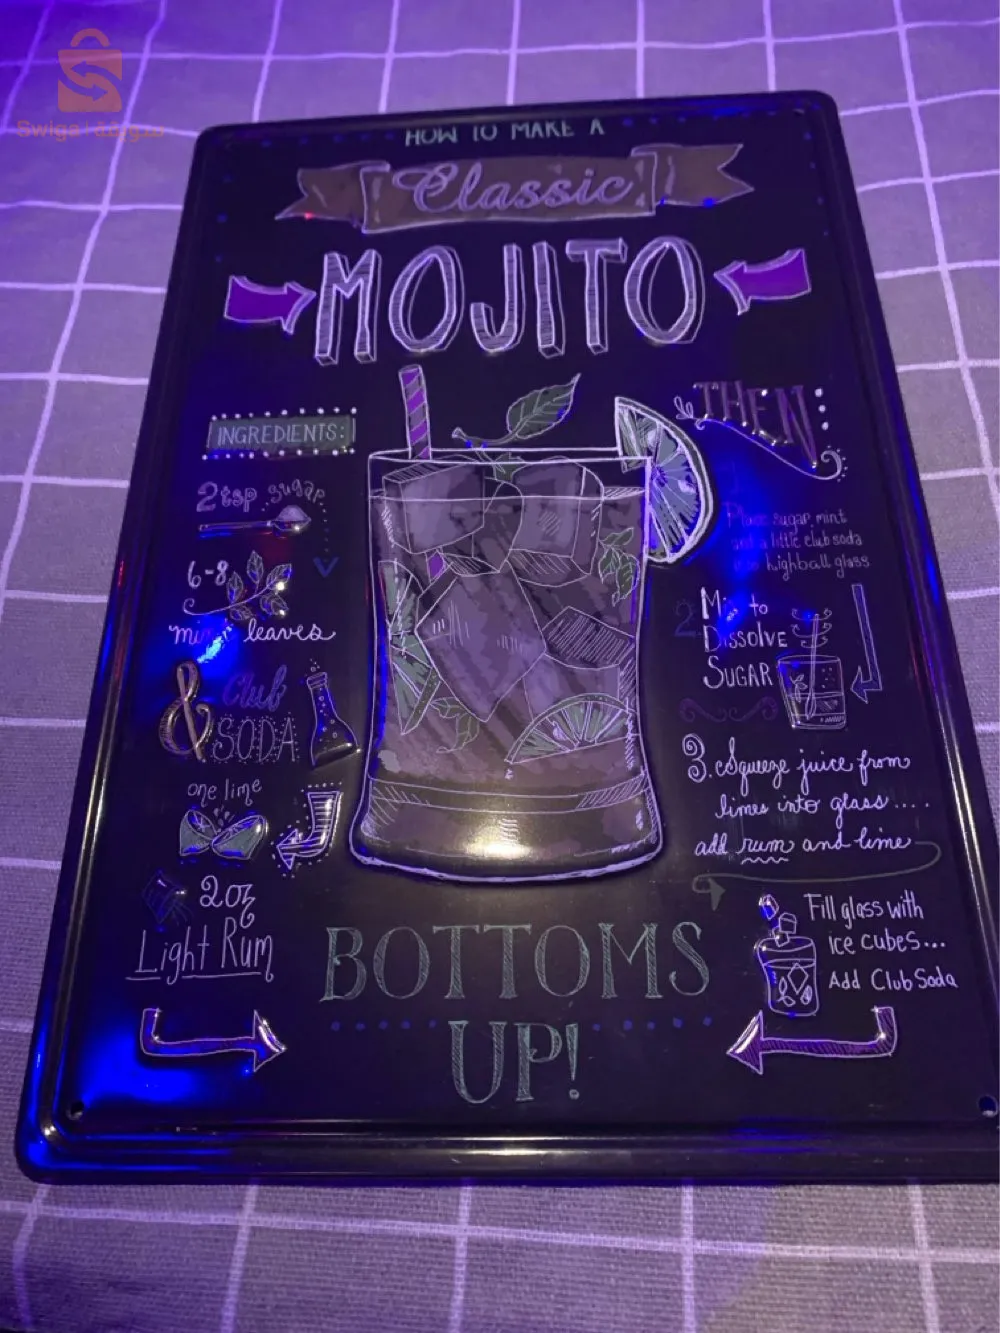 Swiga | سويقة
HOW TO MAKE A
Classic
MOJITO
INGREDIENTS:
2 tsp sugar
6-8
mint leaves
& Club
SODA
one lime
2oz
Light Rum
THEN:
Place sugar, mint
and a little club soda
highball glass
2. to
DISSOLVE
SUGAR
3. Squeeze juice from
limes into glass....
add rum and lime
Fill glass with
ice cubes...
Add Club Soda
BOTTOMS
UP!